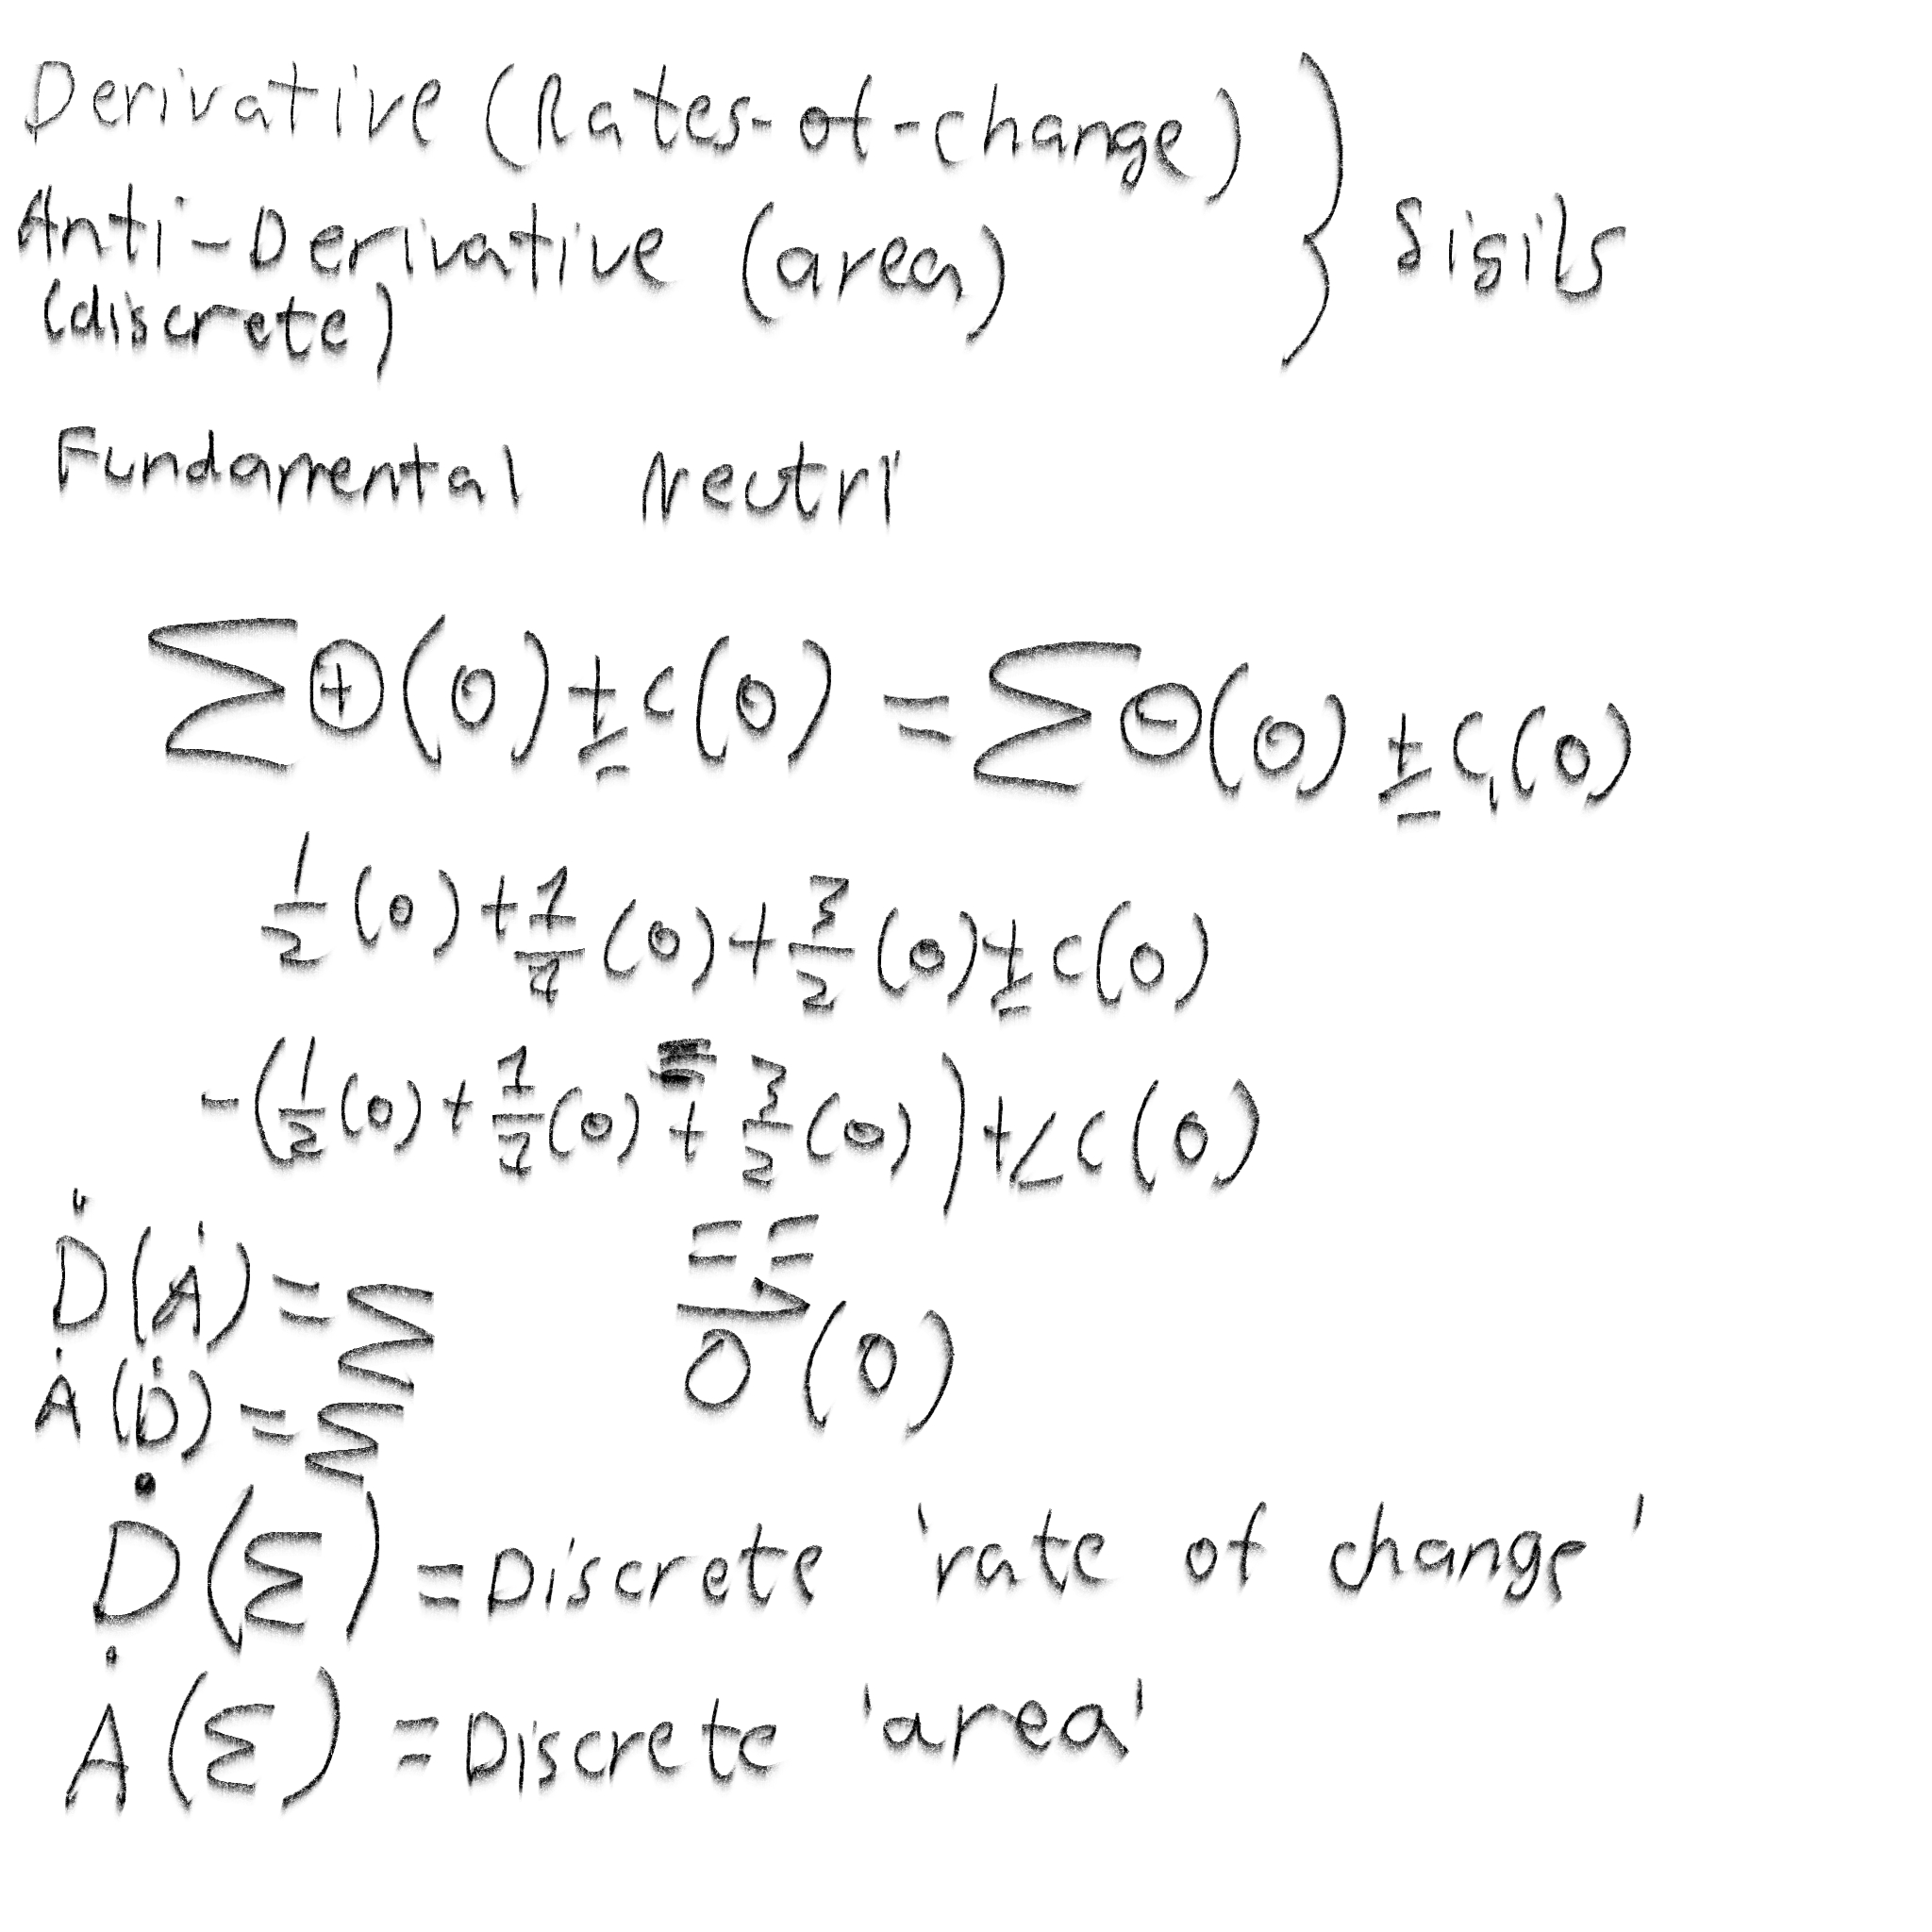 Derivative (Rates-of-change)
Anti-Derivative (area)
(discrete)
} Sigils
Fundamental Neutri
∑⊕(0)±c(0) = ∑⊖(0)±C₁(0)
1/2(0)+1/4(0)+3/2(0)±c(0)
-(1/2(0)+1/4(0)+3/2(0))+∠c(0)
Ḋ(Ȧ)=∑
Ȧ(Ḋ)=∑
0(0)
Ḋ(∑)=Discrete 'rate of change'
Ȧ(∑)=Discrete 'area'